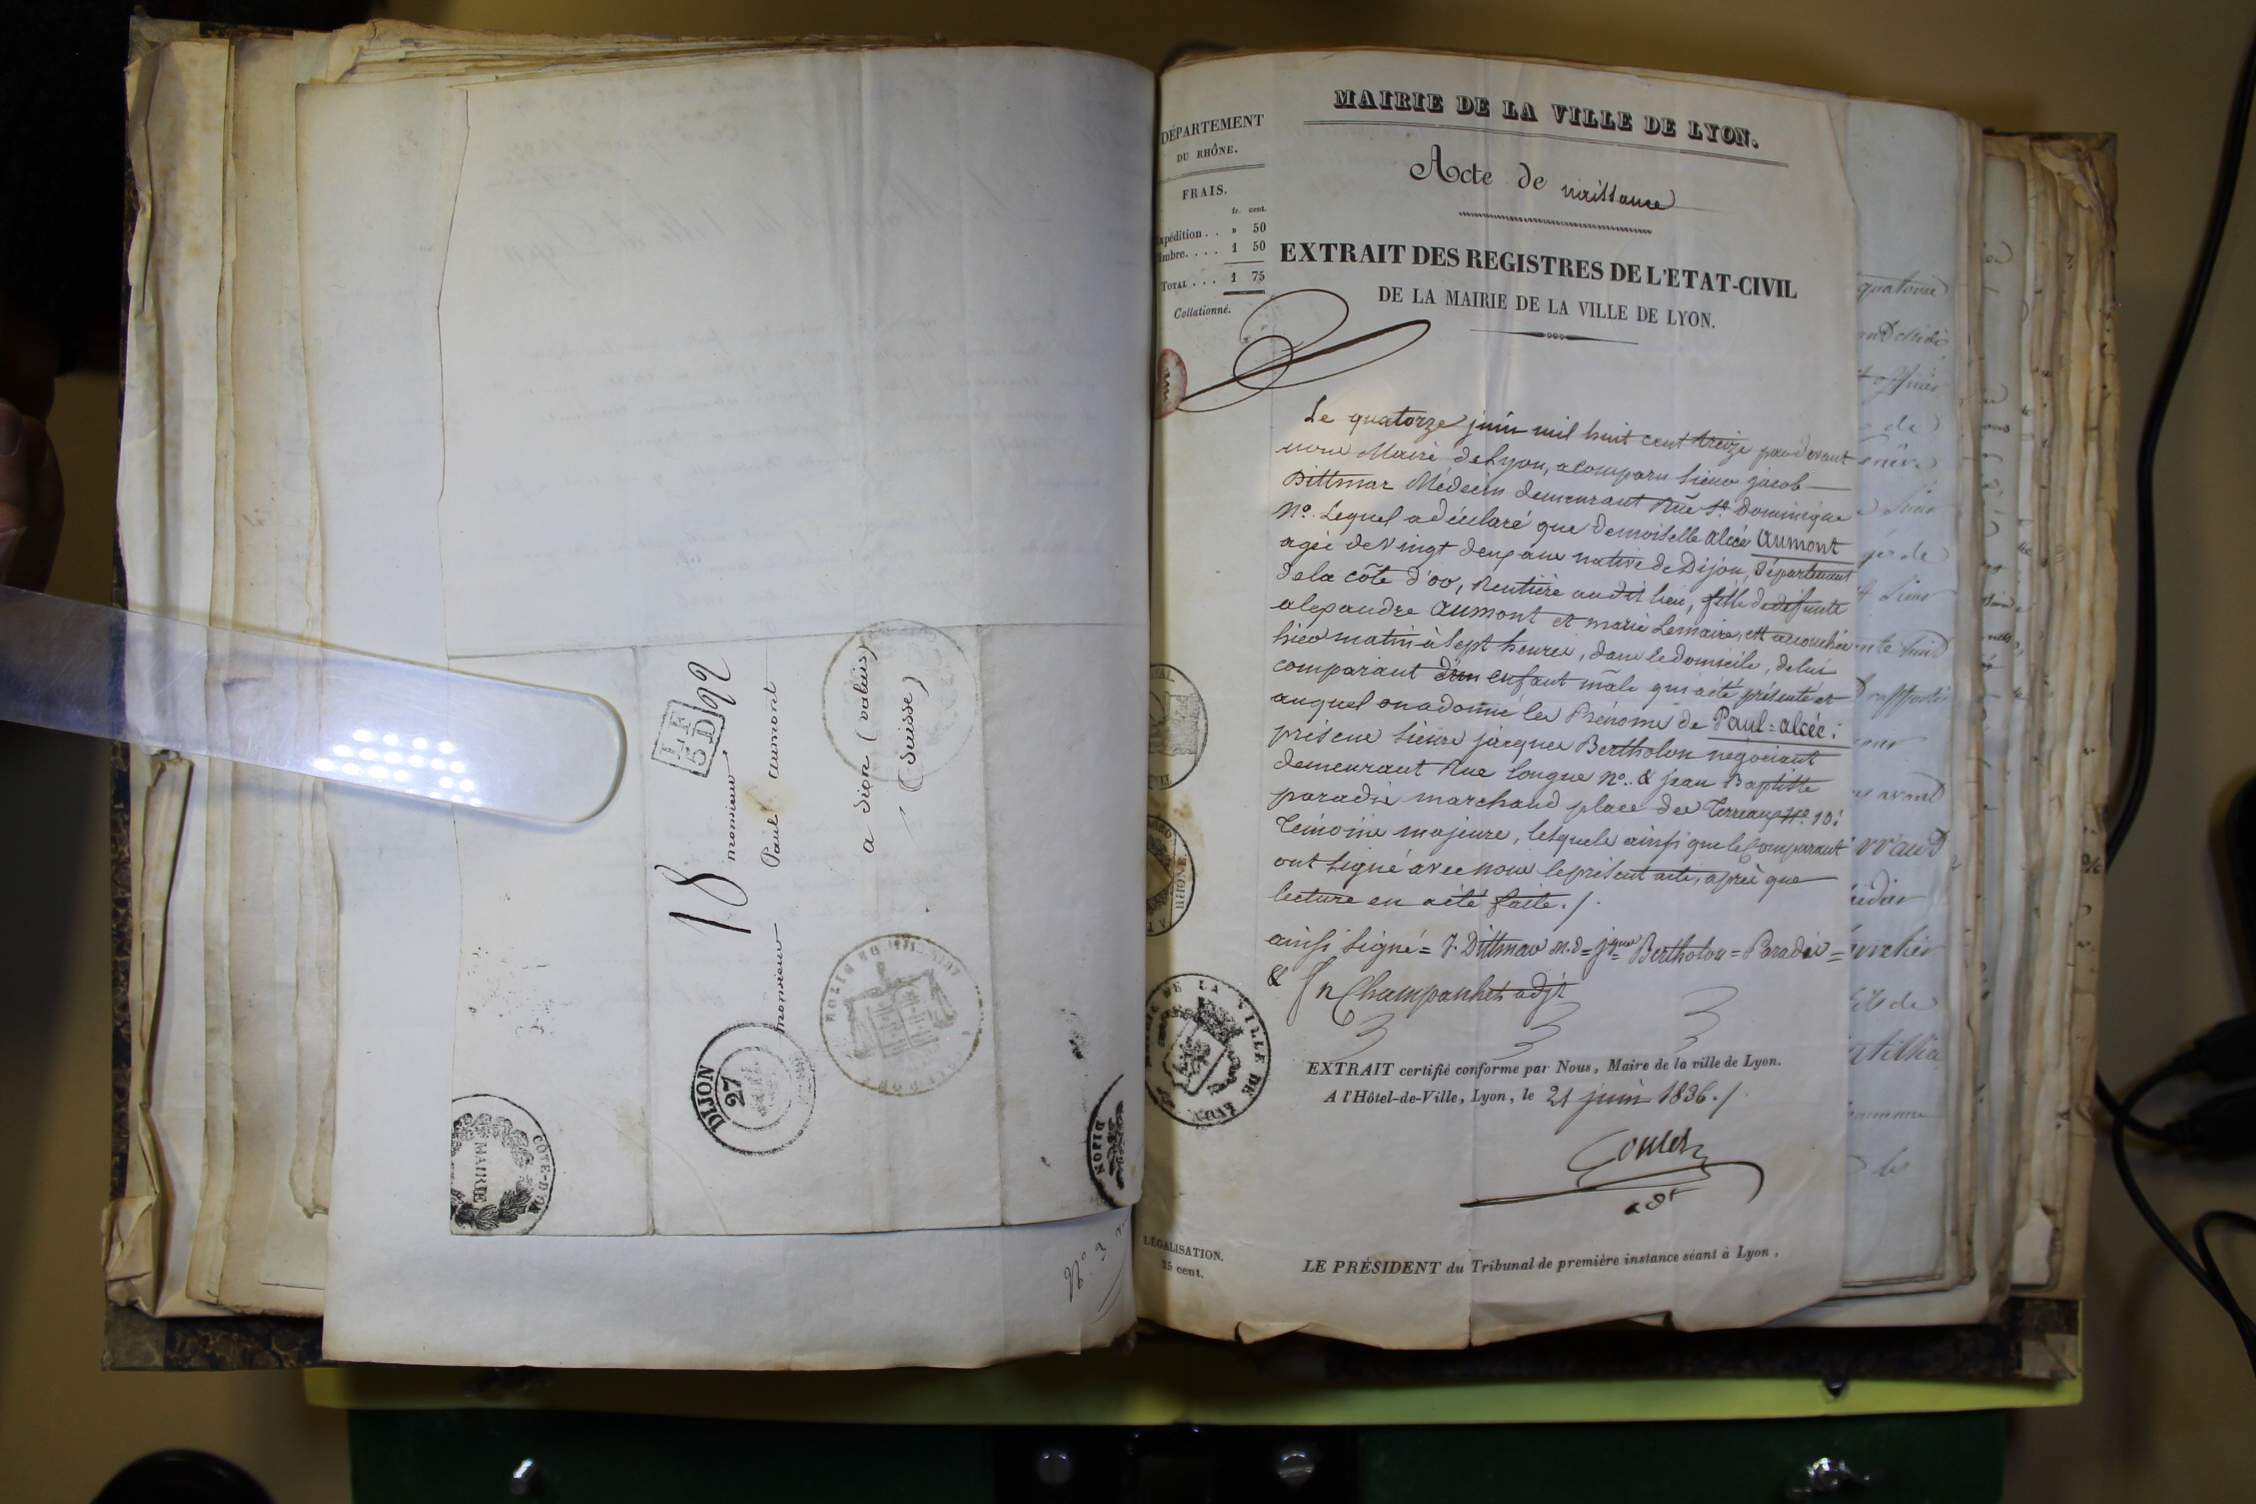 18
92
L.F.
5.D
monsieur
monsieur Paul aumont
a Sion (valais)
(Suisse)
DIJON
27
CÔTE-D'OR
MAIRIE
DIJON
N° 3
MAIRIE DE LA VILLE DE LYON.
Acte de naissance
EXTRAIT DES REGISTRES DE L'ETAT-CIVIL
DE LA MAIRIE DE LA VILLE DE LYON.
DÉPARTEMENT
DU RHÔNE.
FRAIS.
fr. cent.
xpédition . . » 50
imbre. . . . 1 50
TOTAL . . . 1 75
Collationné.
Le quatorze juin mil huit cent treize par devant
nous Maire de Lyon, a comparu Sieur jacob
Dittmar Médecin demeurant Rue St. Dominique
N°. Lequel a déclaré que demoiselle alcée aumont
agée de vingt deux ans native de Dijon, Département
de la côte d'or, Rentière audit lieu, fille de défunts
alexandre aumont et marie Lemaire, est accouchée
hier matin à sept heures, dans le domicile, de lui
comparant d'un enfant mâle qui a été présenté et
auquel on a donné les Prénoms de Paul=alcée:
présens Sieurs jacques Bertholon négociant
demeurant Rue longue N°. & jean Baptiste
paradis marchand place des Terreaux N°. 10:
Témoins majeurs, lesquels ainsi que le Comparant
ont signé avec nous le présent acte, après que
lecture en a été faite./.
ainsi signé = J. Dittmar m.d = jques Bertholon = Paradis =
& Jn Champanhet adjt
EXTRAIT certifié conforme par Nous, Maire de la ville de Lyon.
A l'Hôtel-de-Ville, Lyon, le 21 juin 1836./
MAIRIE DE LA VILLE DE LYON
RHÔNE
LÉGALISATION.
25 cent.
LE PRÉSIDENT du Tribunal de première instance séant à Lyon,